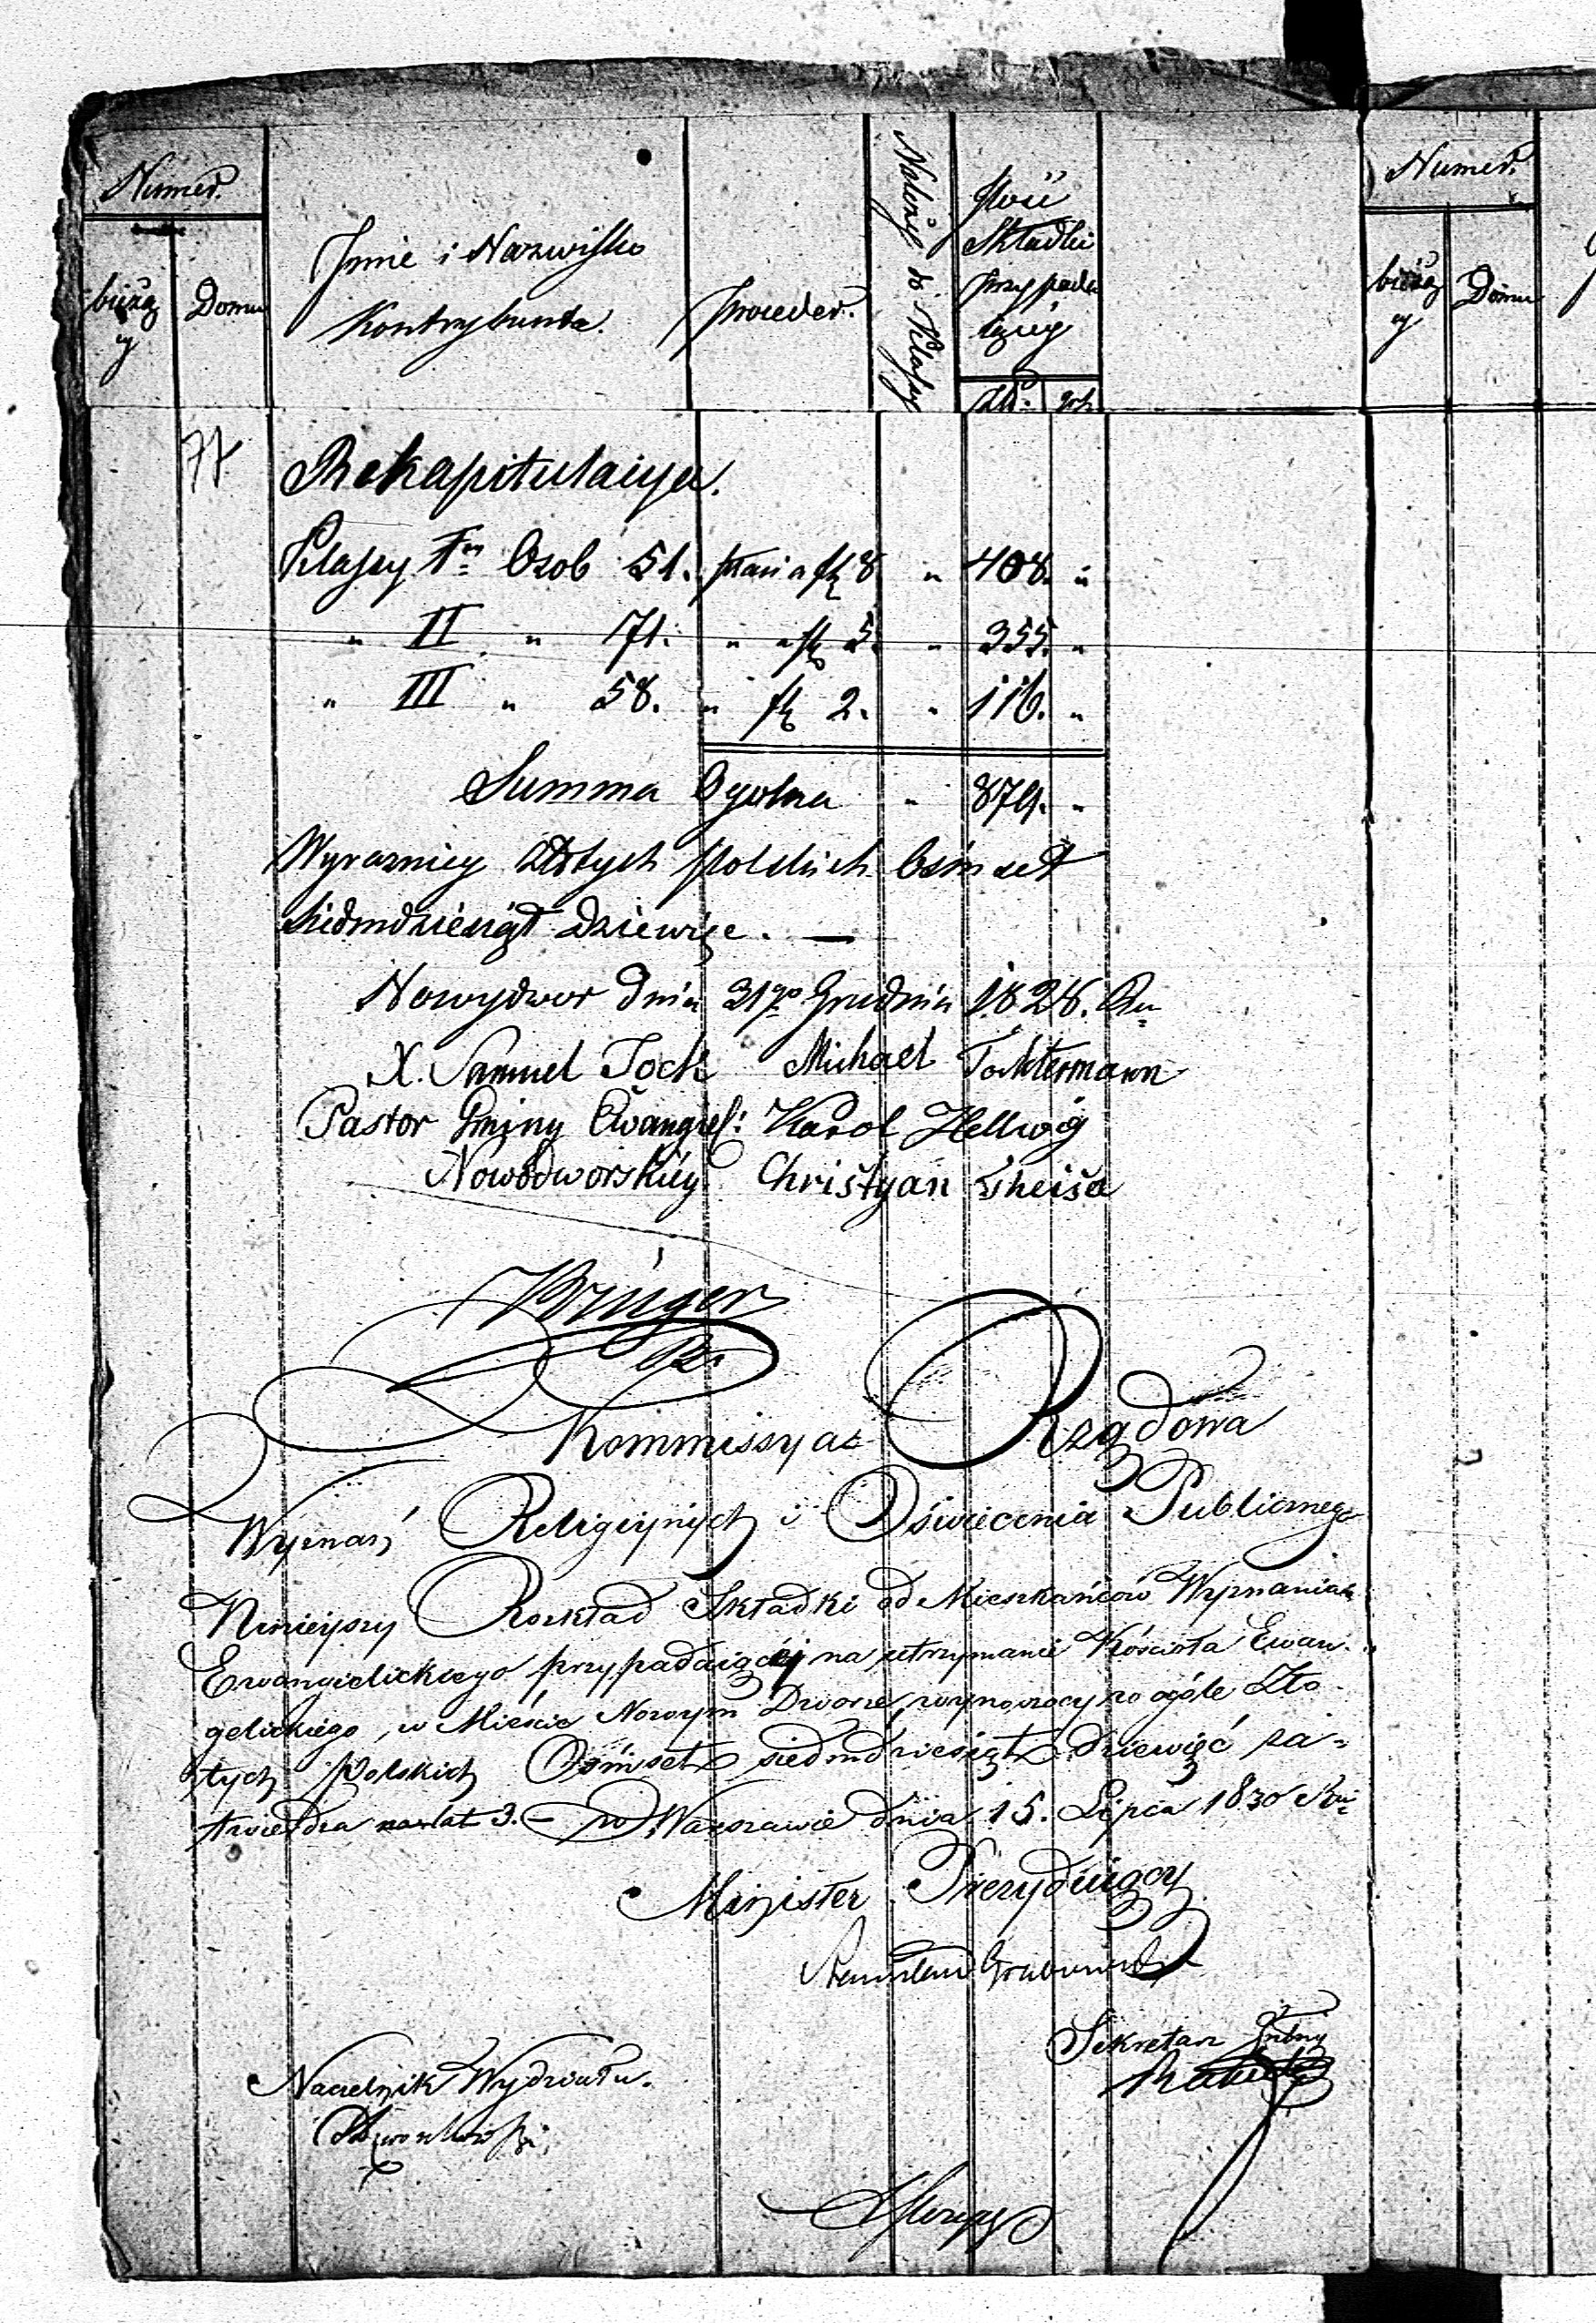 Numer.
bieżą
cy
Domu
Jmie i Nazwisko
Kontrybuenta.
Proceder.
Należy do Klassy
Ilość
Składki
przypada
iącéy
Zł.
gr.
Numer.
bieżą
cy
Domu
Rekapitulacya.
Klassy I Osob 51. płaci a fl 8 " 408. "
" II " 71. " a fl 5. " 355. "
" III " 58. " fl 2. " 116. "
Summa Ogolna " 879. "
Wyrazniey złotych polskich Osmset
siedmdziesiąt dziewięc. —
Nowydwor dnia 31go Grudnia 1828. Ru
X. Samuel Tock Michael Tochtermann
Pastor Gminy Ewangiel: Karol Hellwig
Nowodworskiéy Christyan Theise
Kommissya Rządowa
Wyznań Religiynych i Oświecenia Publicznego
Ninieyszy Rozkład Składki od Mieszkańców Wyznania
Ewangielickiego przypadaiącej na utrzymanie Kościoła Ewan-
gelickiego, w Mieście Nowym Dworze, wynoszący w ogóle Zło-
tych Polskich Ośmset siedmdziesiąt dziewięć za-
twierdza na lat 3. – w Warszawie dnia 15. Lipca 1830 Ru
Minister Prezyduiący
Stanisław Grabowski
Sekretarz Jnlny
Naczelnik Wydziału.